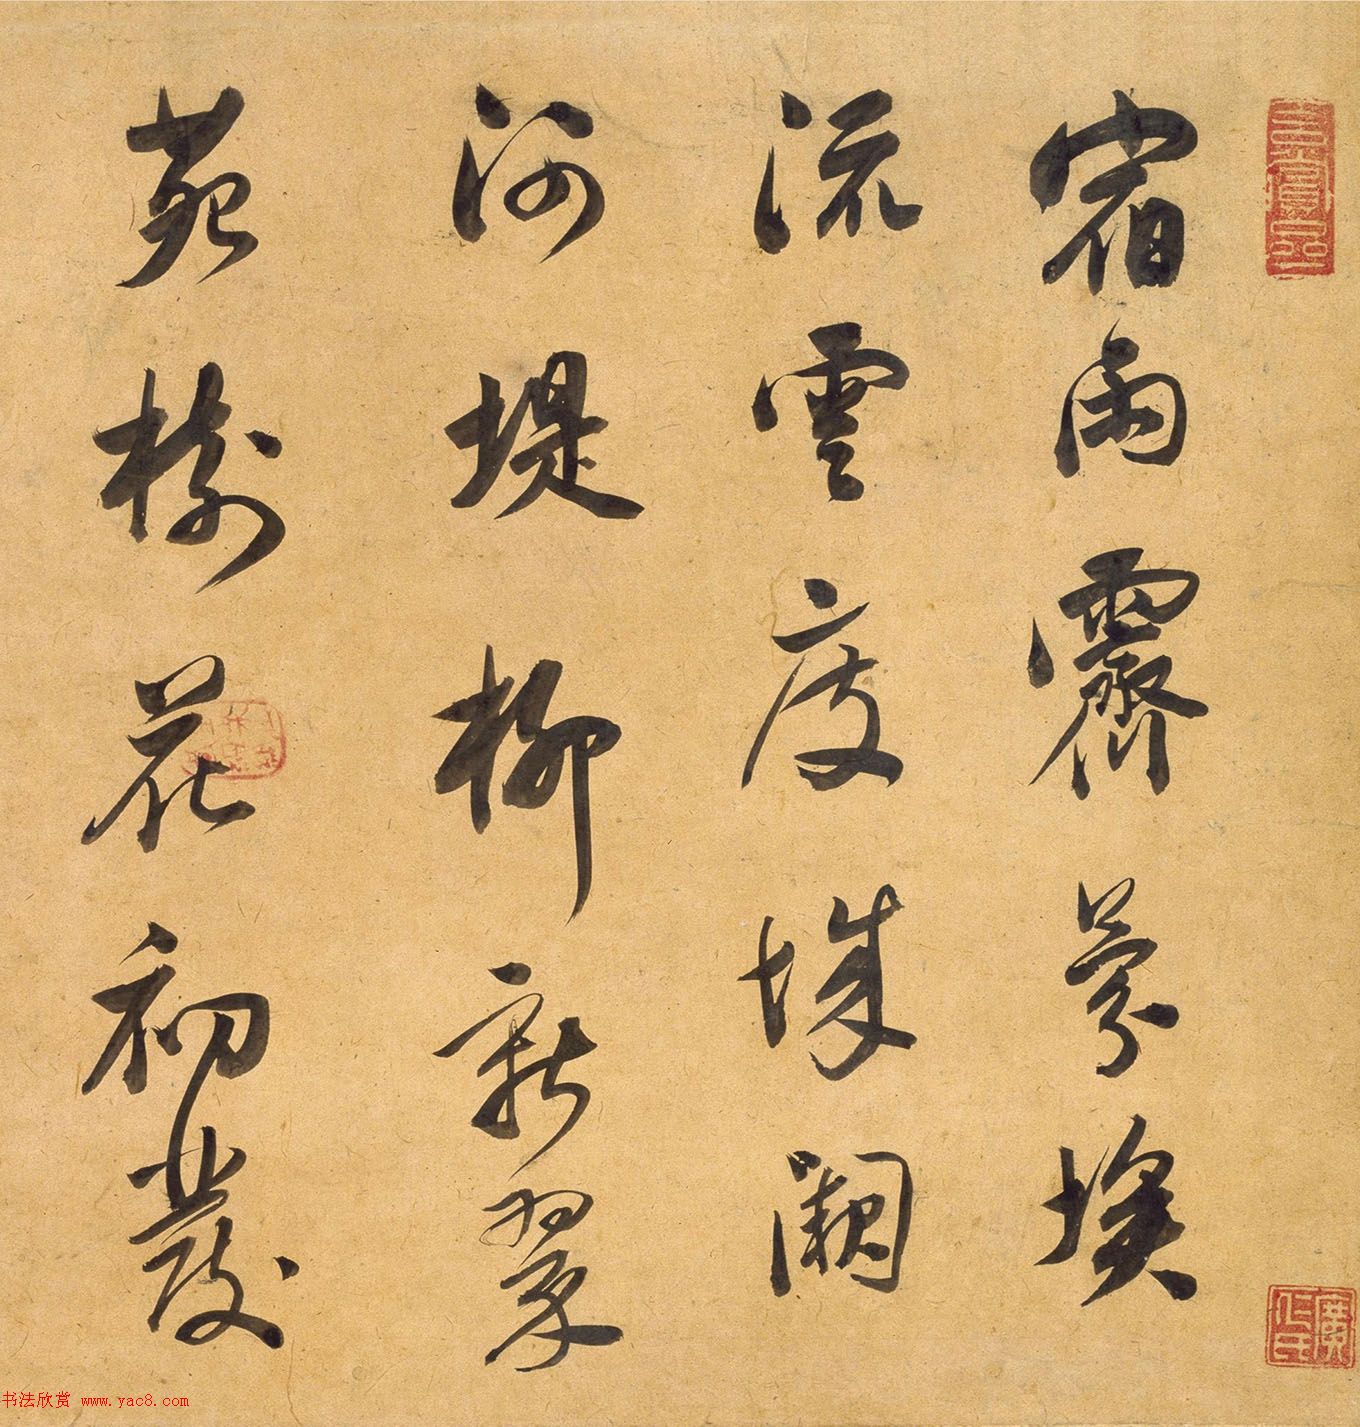 宿雨霽氛埃
流雲度城闕
河堤柳新翠
苑樹花初發
书法欣赏 www.yac8.com